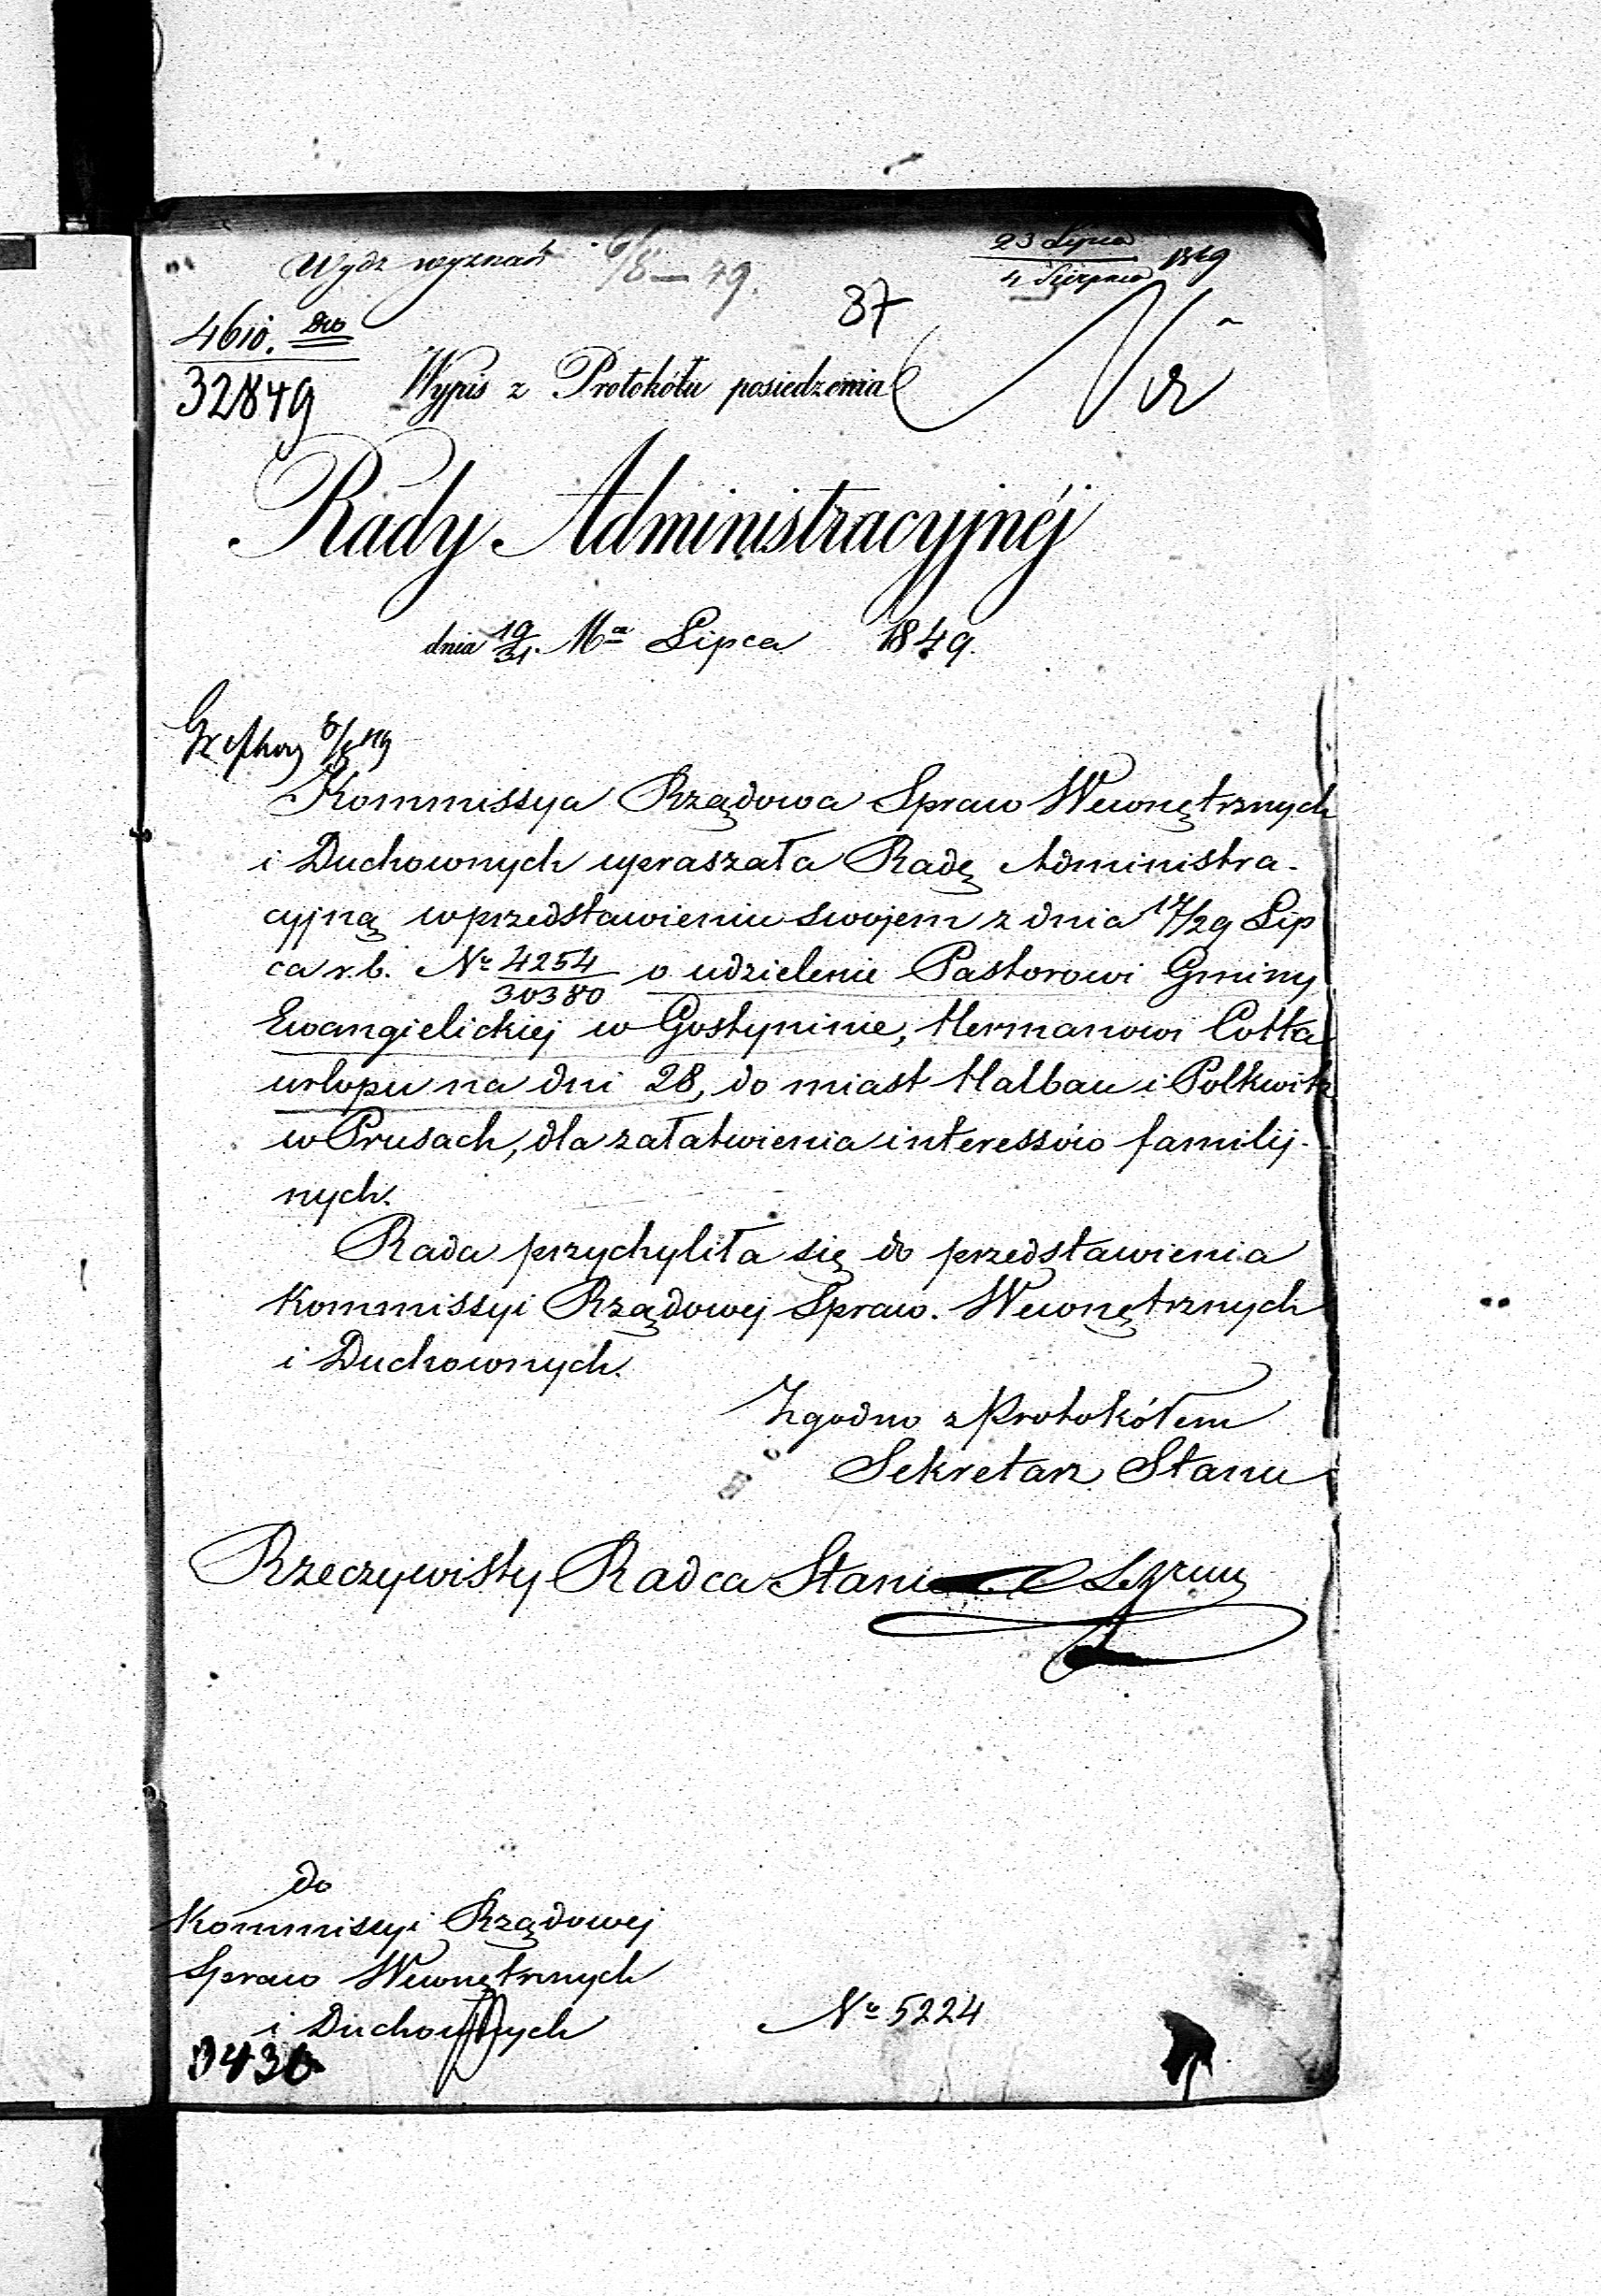 Wydz wyznań 6/8 — 49.
23 Lipca
4 Sierpnia 1849
37
4610. Dwo
32849
Wypis z Protokółu posiedzenia
Rady Administracyjnéj
dnia 19/31. Mca Lipca 1849.
Kommissya Rządowa Spraw Wewnętrznych
i Duchownych upraszała Radę Administra-
cyjną w przedstawieniu swojem z dnia 17/29 Lip
ca r.b. No 4254/30380 o udzielenie Pastorowi Gminy
Ewangielickiej w Gostyninie, Hermanowi Cotta
urlopu na dni 28, do miast Halbau i Polkwitz
w Prusach, dla załatwienia interessów familij-
nych.
Rada przychyliła się do przedstawienia
Kommissyi Rządowej Spraw. Wewnętrznych
i Duchownych.
Zgodno z Protokółem
Sekretarz Stanu
Rzeczywisty Radca Stanu
do
Kommissyi Rządowej
Spraw Wewnętrznych
i Duchownych
No 5224